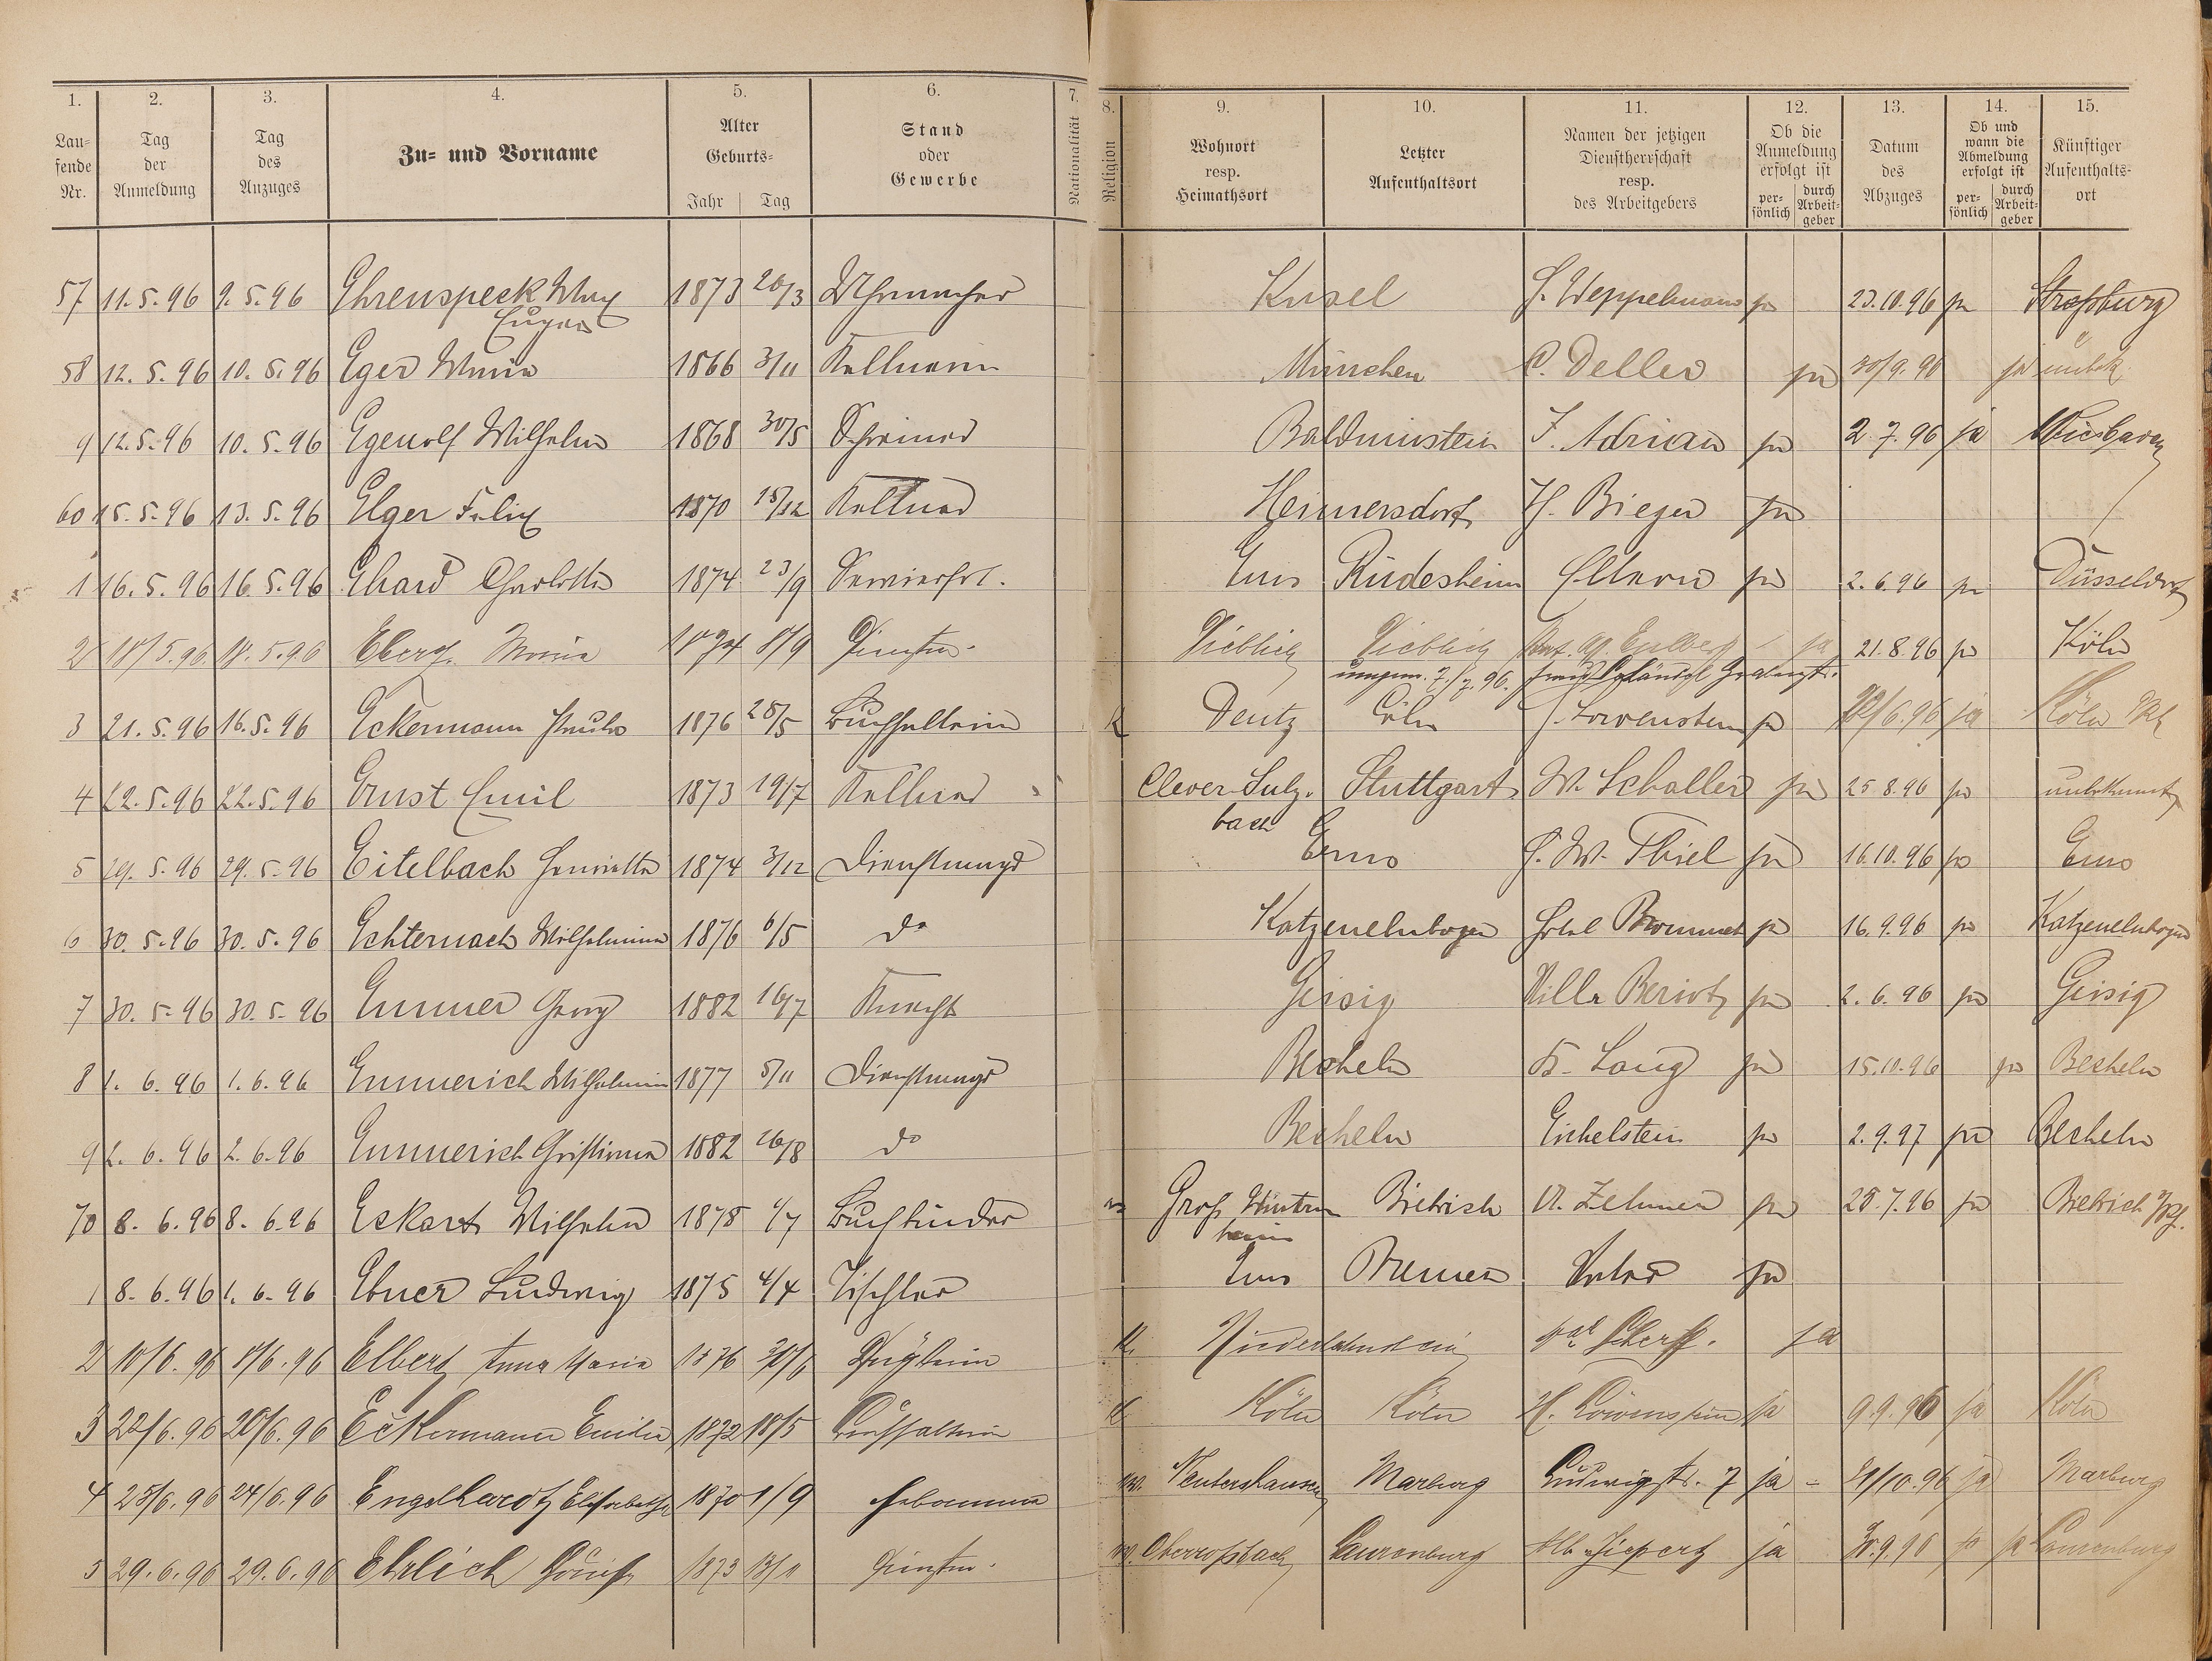 1. 2. 3. 4. 5. 6. 7. 8. 9. 10. 11. 12. 13. 14. 15.
Lau-
fende
Nr.
Tag
der
Anmeldung
Tag
des
Anzuges
Zu- und Vorname
Alter
Geburts-
Jahr Tag
Stand
oder
Gewerbe
Nationalität
Religion
Wohnort
resp.
Heimathsort
Letzter
Aufenthaltsort
Namen der jetzigen
Dienstherrschaft
resp.
des Arbeitgebers
Ob die
Anmeldung
erfolgt ist
per-
sönlich
durch
Arbeit-
geber
Datum
des
Abzuges
Ob und
wann die
Abmeldung
erfolgt ist
per-
sönlich
durch
Arbeit-
geber
Künftiger
Aufenthalts-
ort
57 11. 5. 96 9. 5. 96 Ehrenspeck Max 1873 Uhrmacher Kusel Weppelmann ja 23.10.96 ja Straßburg
Eugen
58 12. 5. 96 10. 5. 96 Eger Maria 1866 3/11 Kellnerin München C. Deller ja 30/9. 96 ja unbek.
9 12. 5. 96 10. 5. 96 Egenolf Wilhelm 1868 30/5 Schreiner Balduinstein J. Adrian ja 2. 7. 96 ja Wiesbaden
60 15. 5. 96 13. 5. 96 Elger Felix 1870 15/12 Kellner Heinersdorf H. Bieger ja
1 16. 5. 96 16. 5. 96 Ehard Charlotte 1874 23/9 Servierfrl. Ems Rüdesheim Eltern ja 2. 6. 96 ja Düsseldorf
2 18/5. 96 18. 5. 96 Eberz Maria 1874 8/9 Dienstm. ja 21. 8. 96 ja Köln
7./7. 96.
3 21. 5. 96 16. 5. 96 Eckermann Paula 1876 28/5 Buchhalterin K Deutz Cöln J. Lowenstein ja 6. 96 ja Köln
4 22. 5. 96 22. 5. 96 Ernst Emil 1873 19/7 Kellner Clever-Sulz- Stuttgart W. Schaller ja 25 8. 96 ja unbekannt
bach
5 29. 5. 96 29. 5. 96 Eitelbach Henriette 1874 3/12 Dienstmagd Ems W. Thiel ja 16. 10. 96 ja Ems
6 30. 5. 96 30. 5. 96 Echternach Wilhelmine 1876 6/5 do Katzenelnbogen Hotel ja 16. 9. 96 ja Katzenelnbogen
7 30. 5. 96 30. 5. 96 Emmer Georg 1882 16/7 Knecht Geisig Villa Beriot ja 2. 6. 96 ja Geisig
8 1. 6. 96 1. 6. 96 Emmerich Wilhelmine 1877 5/11 Dienstmagd Becheln Lang ja 15. 10. 96 ja Becheln
9 2. 6. 96 2. 6. 96 Emmerich Christiana 1882 26/8 do Becheln Eichelstein ja 2. 9. 97 ja Becheln
70 8. 6. 96 8. 6. 96 Eckart Wilhelm 1878 Buchbinder Groß Wintern Biebrich A. Zehner ja 28. 7. 96 ja Biebrich
heim
1 8. 6. 96 1. 6. 96 Ebner Ludwig 1875 4/4 Tischler Ems Bremen Vater ja
2 10/6. 96 8/6. 96 Elbert Anna Maria 1876 30/6 K. Niederlahnstein ja
3 22/6. 96 20/6. 96 Eckermann Emilie 1872 18/5 Buchhalterin K Köln Köln H. Löwenstein ja 9. 9. 96 ja Köln
4 25/6. 96 24/6. 96 Engelhardt Elisabethe 1870 1/9 Hebamme Marburg Ludwigstr. 7 ja 10. 96 ja Marburg
5 29. 6. 96 29. 6. 96 Ehrlich Louise 1873 Dienstm. Oberroßbach Laurenburg ja 9. 96 Laurenburg